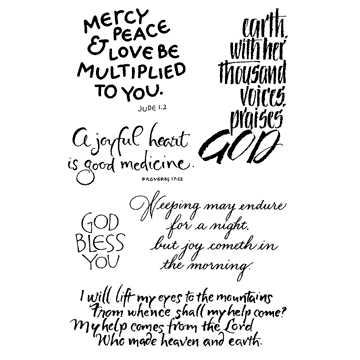 MERCY
& PEACE
LOVE BE
MULTIPLIED
TO YOU.
JUDE 1:2
earth
with her
thousand
voices,
praises
GOD
A joyful heart
is good medicine.
PROVERBS 17:22
GOD
BLESS
YOU
Weeping may endure
for a night,
but joy cometh in
the morning.
I will lift my eyes to the mountains
From whence shall my help come?
My help comes from the Lord
Who made heaven and earth.